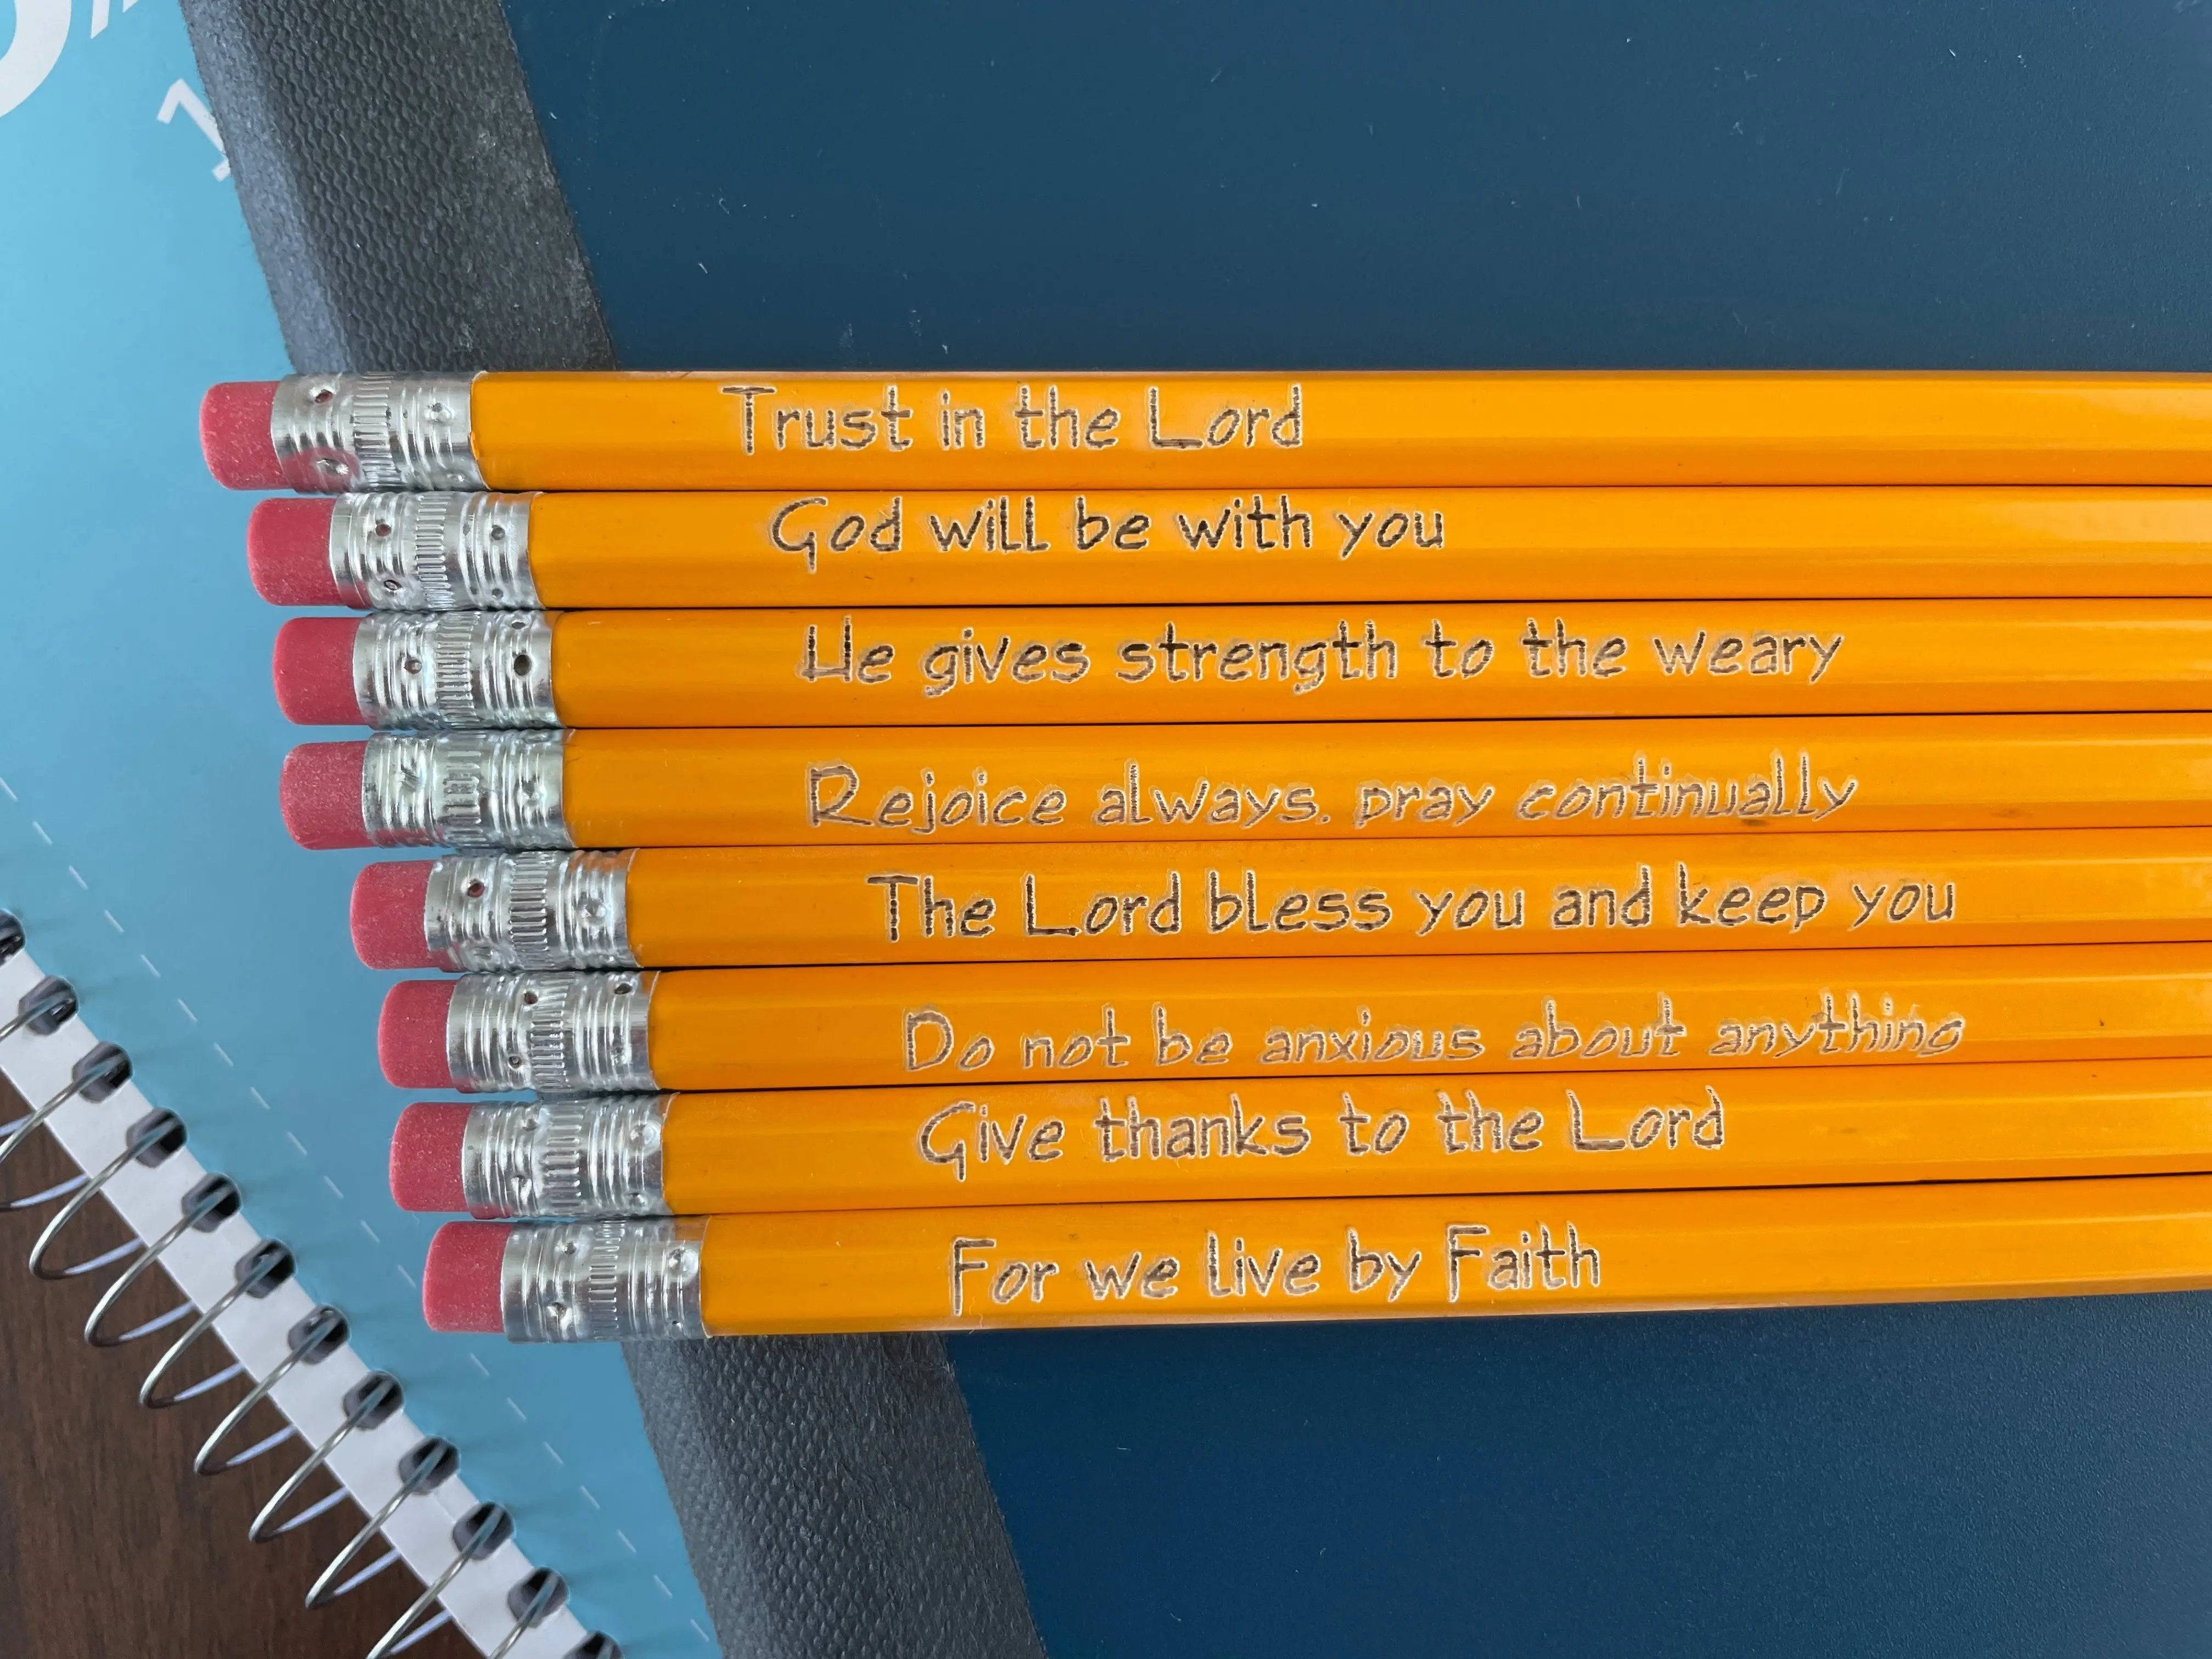 Trust in the Lord
God will be with you
He gives strength to the weary
Rejoice always. pray continually
The Lord bless you and keep you
Do not be anxious about anything
Give thanks to the Lord
For we live by Faith